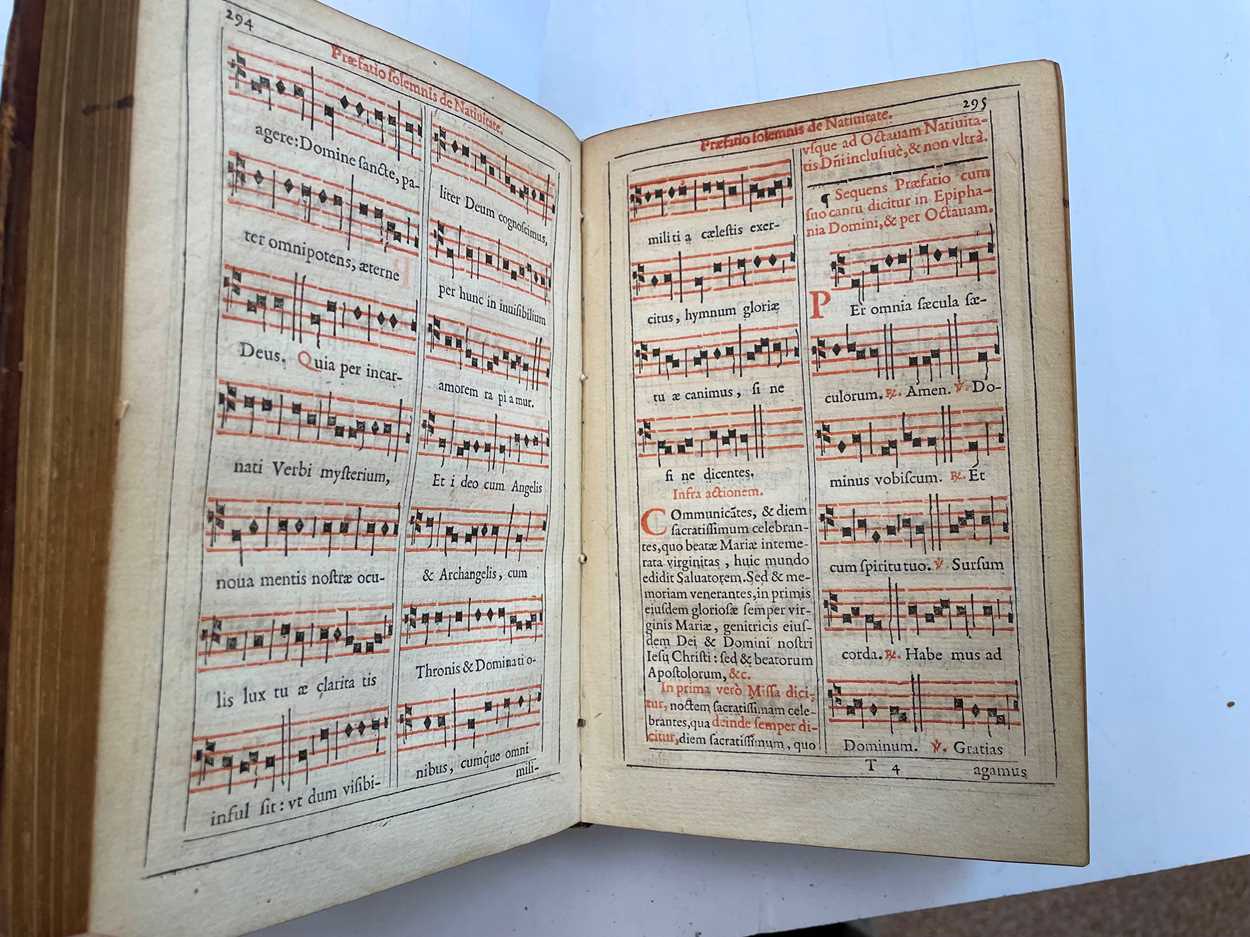 294
Præfatio solemnis de Natiuitate.
agere: Domine sancte, pa-
ter omnipotens, æterne
Deus. Quia per incar-
nati Verbi mysterium,
noua mentis nostræ ocu-
lis lux tu æ çlarita tis
inful sit: vt dum visibi-
liter Deum cognoscimus,
per hunc in inuisibilium
amorem ra pi a mur.
Et i deo cum Angelis
& Archangelis, cum
Thronis & Dominati o-
nibus, cumq́ue omni
mili-
295
Præfatio solemnis de Natiuitate.
militi ą cælestis exer-
citus, hymnum gloriæ
tu æ canimus, si ne
fi ne dicentes.
Infra actionem.
Communicātes, & diem
sacratissimum celebran-
tes, quo beatæ Mariæ inteme-
rata virginitas, huic mundo
edidit Saluatorem. Sed & me-
moriam venerantes, in primis
eiusdem gloriosæ semper vir-
ginis Mariæ, genitricis eius-
dem Dei & Domini nostri
Iesu Christi: sed & beatorum
Apostolorum, &c.
In prima verò Missa dici-
tur, noctem sacratissimam cele-
brantes, qua deinde semper di-
citur, diem sacratissimum, quo
vsque ad Octauam Natiuita-
tis Dñi inclusiuè, & non vltrà.
¶ Sequens Præfatio cum
suo cantu dicitur in Epipha-
nia Domini, & per Octauam.
PEr omnia sæcula sæ-
culorum. ℟. Amen. ℣. Do-
minus vobiscum. ℟. Et
cum spiritu tuo. ℣. Sursum
corda. ℟. Habe mus ad
Dominum. ℣. Gratias
T 4
agamus